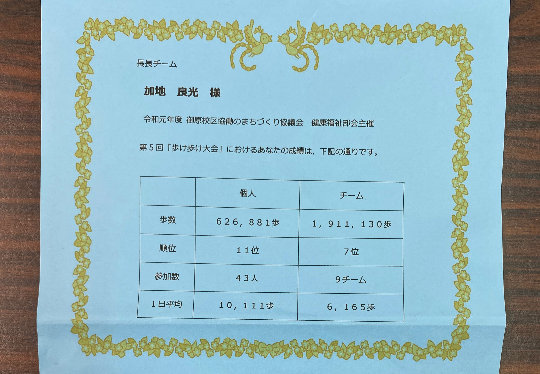 長長チーム
加地 良光 様
令和元年度 御原校区協働のまちづくり協議会 健康福祉部会主催
第５回「歩け歩け大会」におけるあなたの成績は、下記の通りです。
個人 チーム
歩数 ６２６，８８１歩 １，９１１，１３０歩
順位 １１位 ７位
参加数 ４３人 ９チーム
１日平均 １０，１１１歩 ６，１６５歩